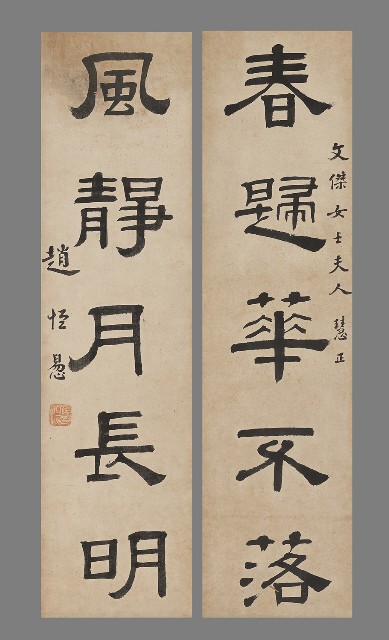 春歸華不落
文傑女士夫人 慧正
風靜月長明
趙恒惕